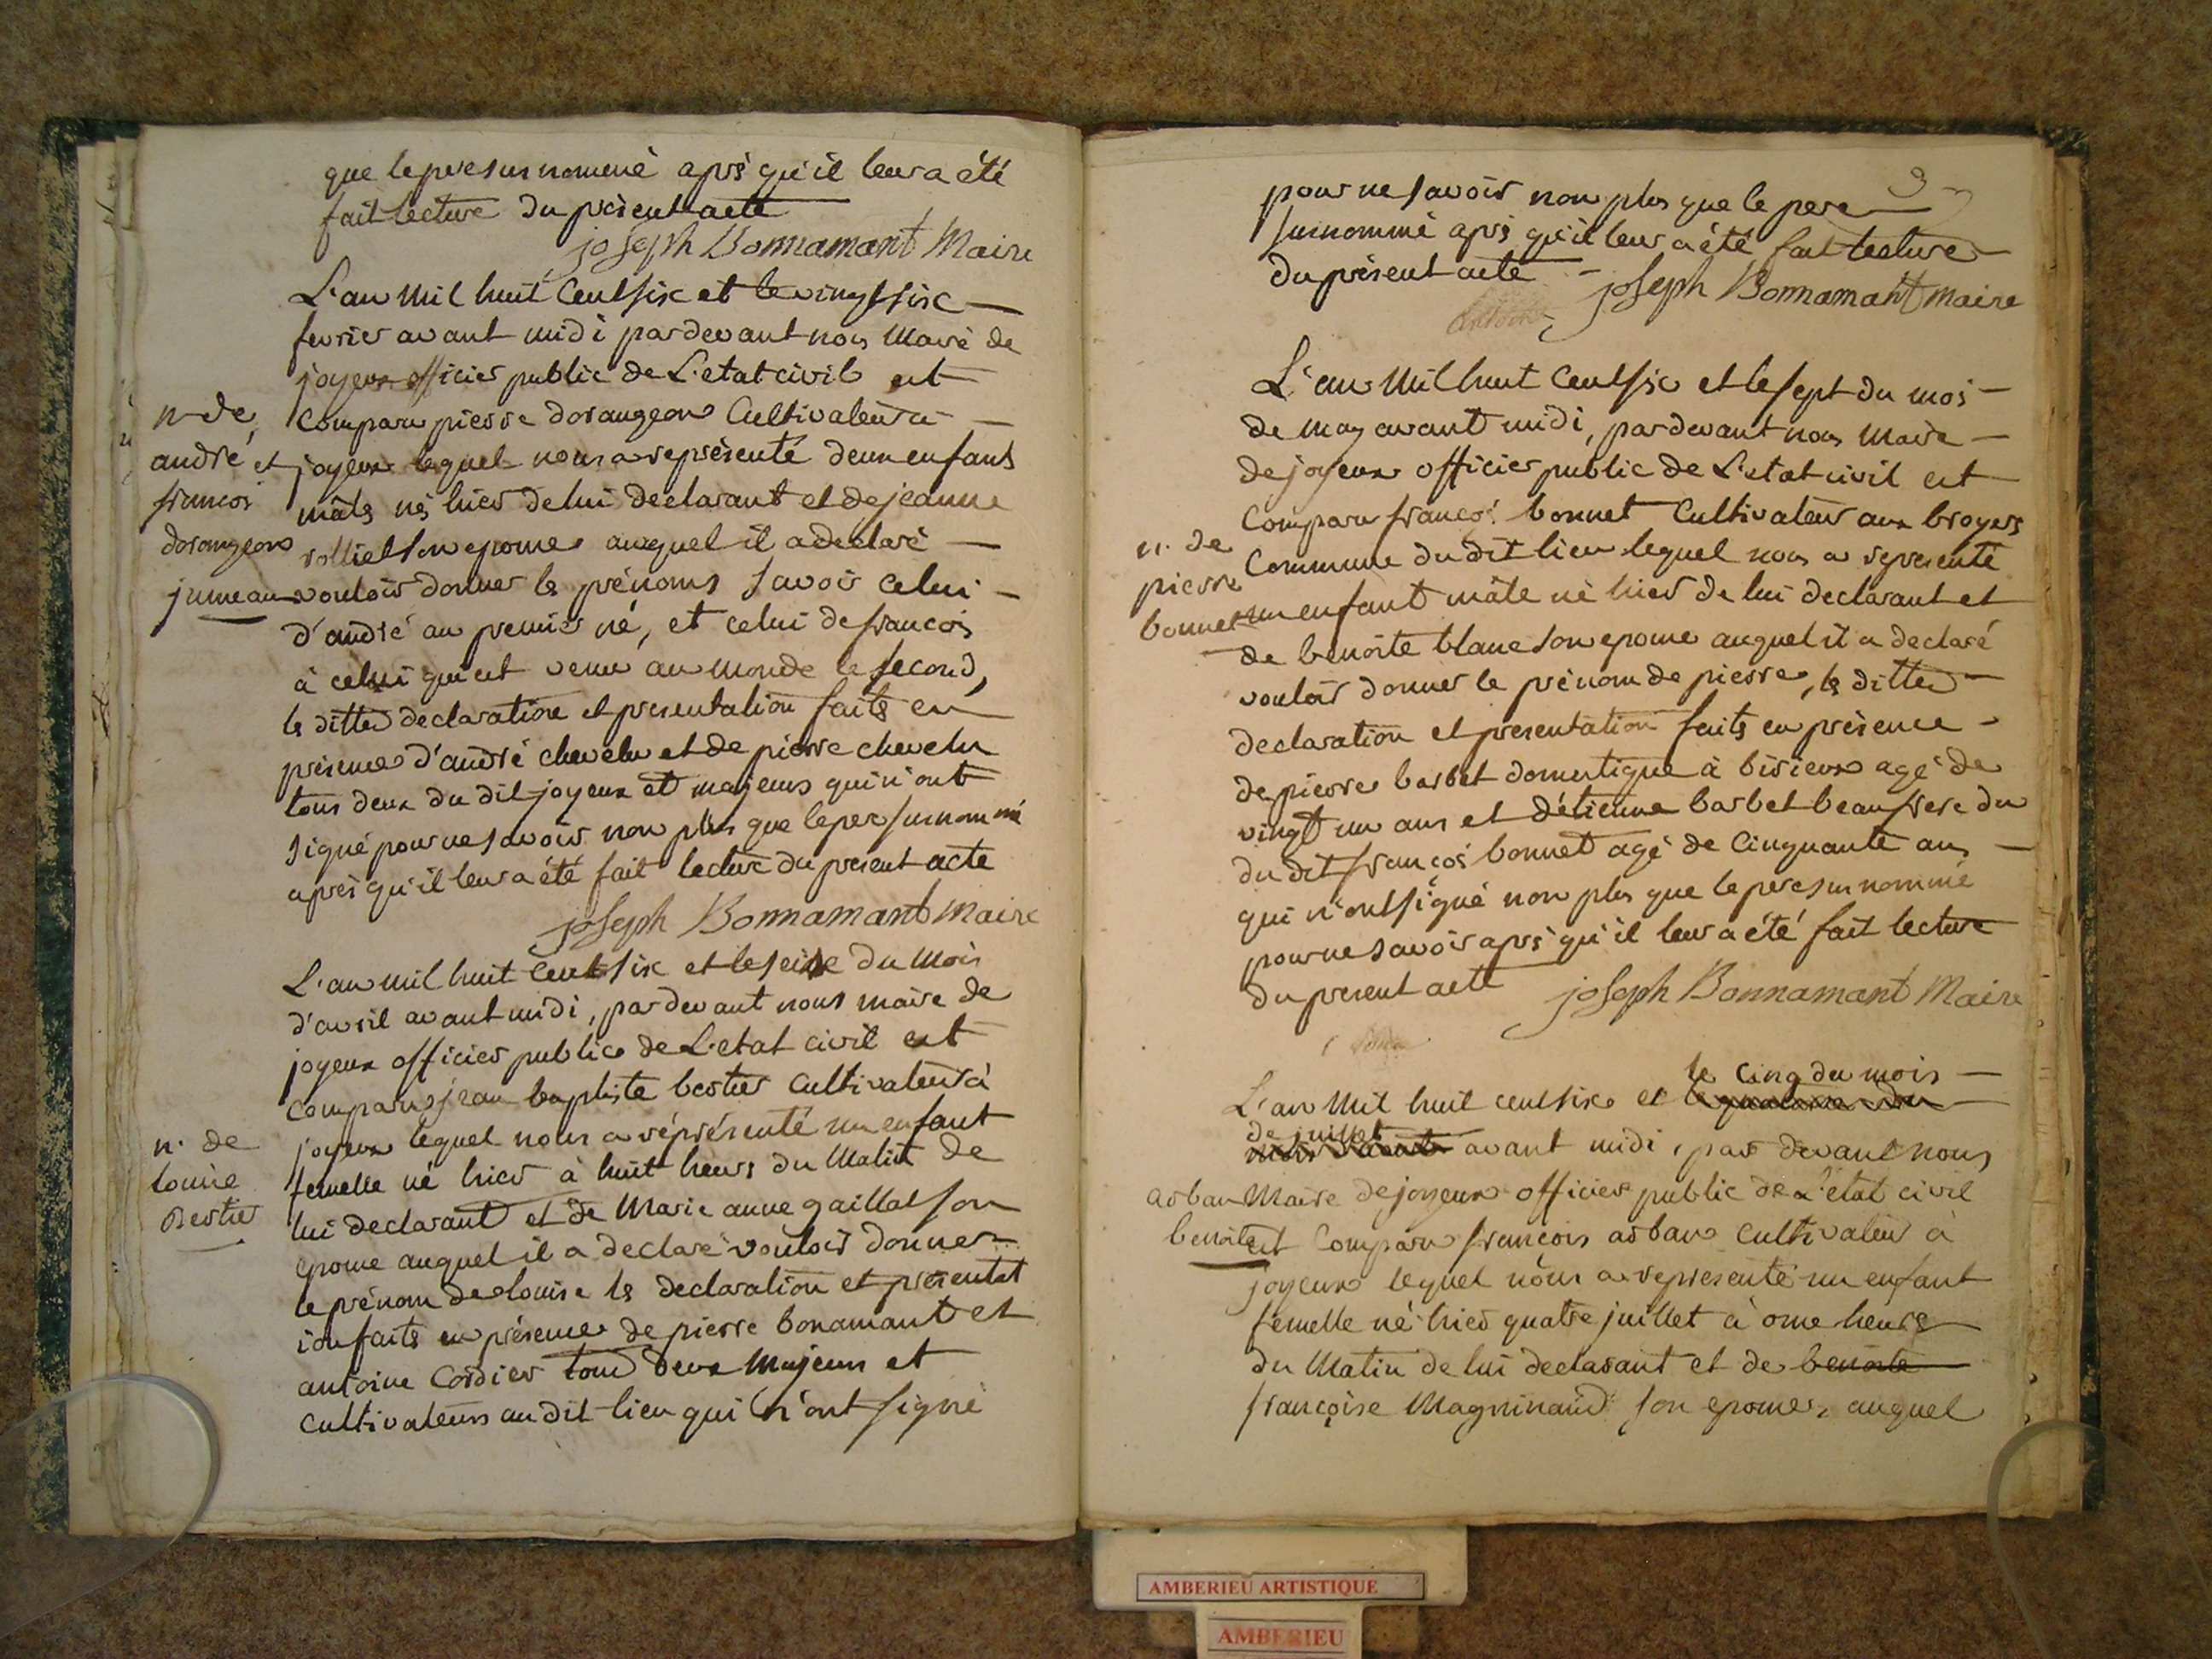 que le pere surnommé aprs qu'il leur a été
fait lecture du présent acte
joseph Bonnamant Maire
L'an mil huit cent six et le vingt six
fevrier avant midi pardevant nous maire de
joyeux officier public de L'etat civil est
n. de
comparu pierre dorangeon Cultivateur a
andré et
joyeux lequel nous a représenté deux enfants
francois
mâls nés hier de lui declarant et de jeanne
dorangeon
rolliet son epouse auquel il a declaré
jumeaux
vouloir donner ls prénoms savoir celui
d'andré au premier né, et celui de francois
à celui qui est venu au monde le second,
ls dittes declaration et presentation faits en
présence d'andré chevelu et de pierre chevelu
tous deux du dit joyeux et majeurs qui n'ont
signé pour ne savoir non plus que le per surnommé
aprés qu'il leur a été fait lecture du present acte
joseph Bonnamant Maire
L'an mil huit cent six et le seize du mois
d'avril avant midi, pardevant nous maire de
joyeux officier public de L'etat civil est
comparu jean baptiste bertier cultivateur à
joyeux lequel nous a représenté un enfant
n. de
femelle né hier à huit heurs du Matin de
louise
lui declarant et de Marie anne gaillat son
Bertier
epouse auquel il a declaré vouloir donner
le prénom de louise ls declaration et présentat
ion faits en présence de pierre bonamant et
antoine Cordier tous deux Majeurs et
cultivateurs au dit lieu qui n'ont signé
3
pour ne savoir non plus que le pere
surnommé aprs qu'il leur a été fait lecture
du présent acte
joseph Bonnamant maire
L'an mil huit cent six et le sept du mois
de may avant midi, pardevant nous Maire
de joyeux officier public de L'etat civil est
comparu françois bonnet Cultivateur aux broyers
n. de
Commune du dit lieu lequel nous a representé
pierre
un enfant mâle né hier de lui declarant et
bonnet
de benoite blanc son epouse auquel il a declaré
vouloir donner le prénom de pierre, ls dittes
declaration et presentation faits en présence
de pierre barbet domestique à birieux agé de
vingt un ans et d'étienne barbet beaufrere du
du dit françois bonnet agé de Cinquante ans
qui n'ont signé non plus que le pere surnommé
pour ne savoir aprs qu'il leur a été fait lecture
du present acte
joseph Bonnamant Maire
le cinq du mois
L'an mil huit cent six et
de juillet
avant midi, par devant nous
arban
Maire de joyeux officier public de L'état civil
benoite
est Comparu françois arban cultivateur à
joyeux lequel nous a representé un enfant
femelle né hier quatre juillet à onze heurs
du Matin de lui declarant et de benoite
françoise Magninaud son epouse, auquel
AMBERIEU ARTISTIQUE
AMBERIEU